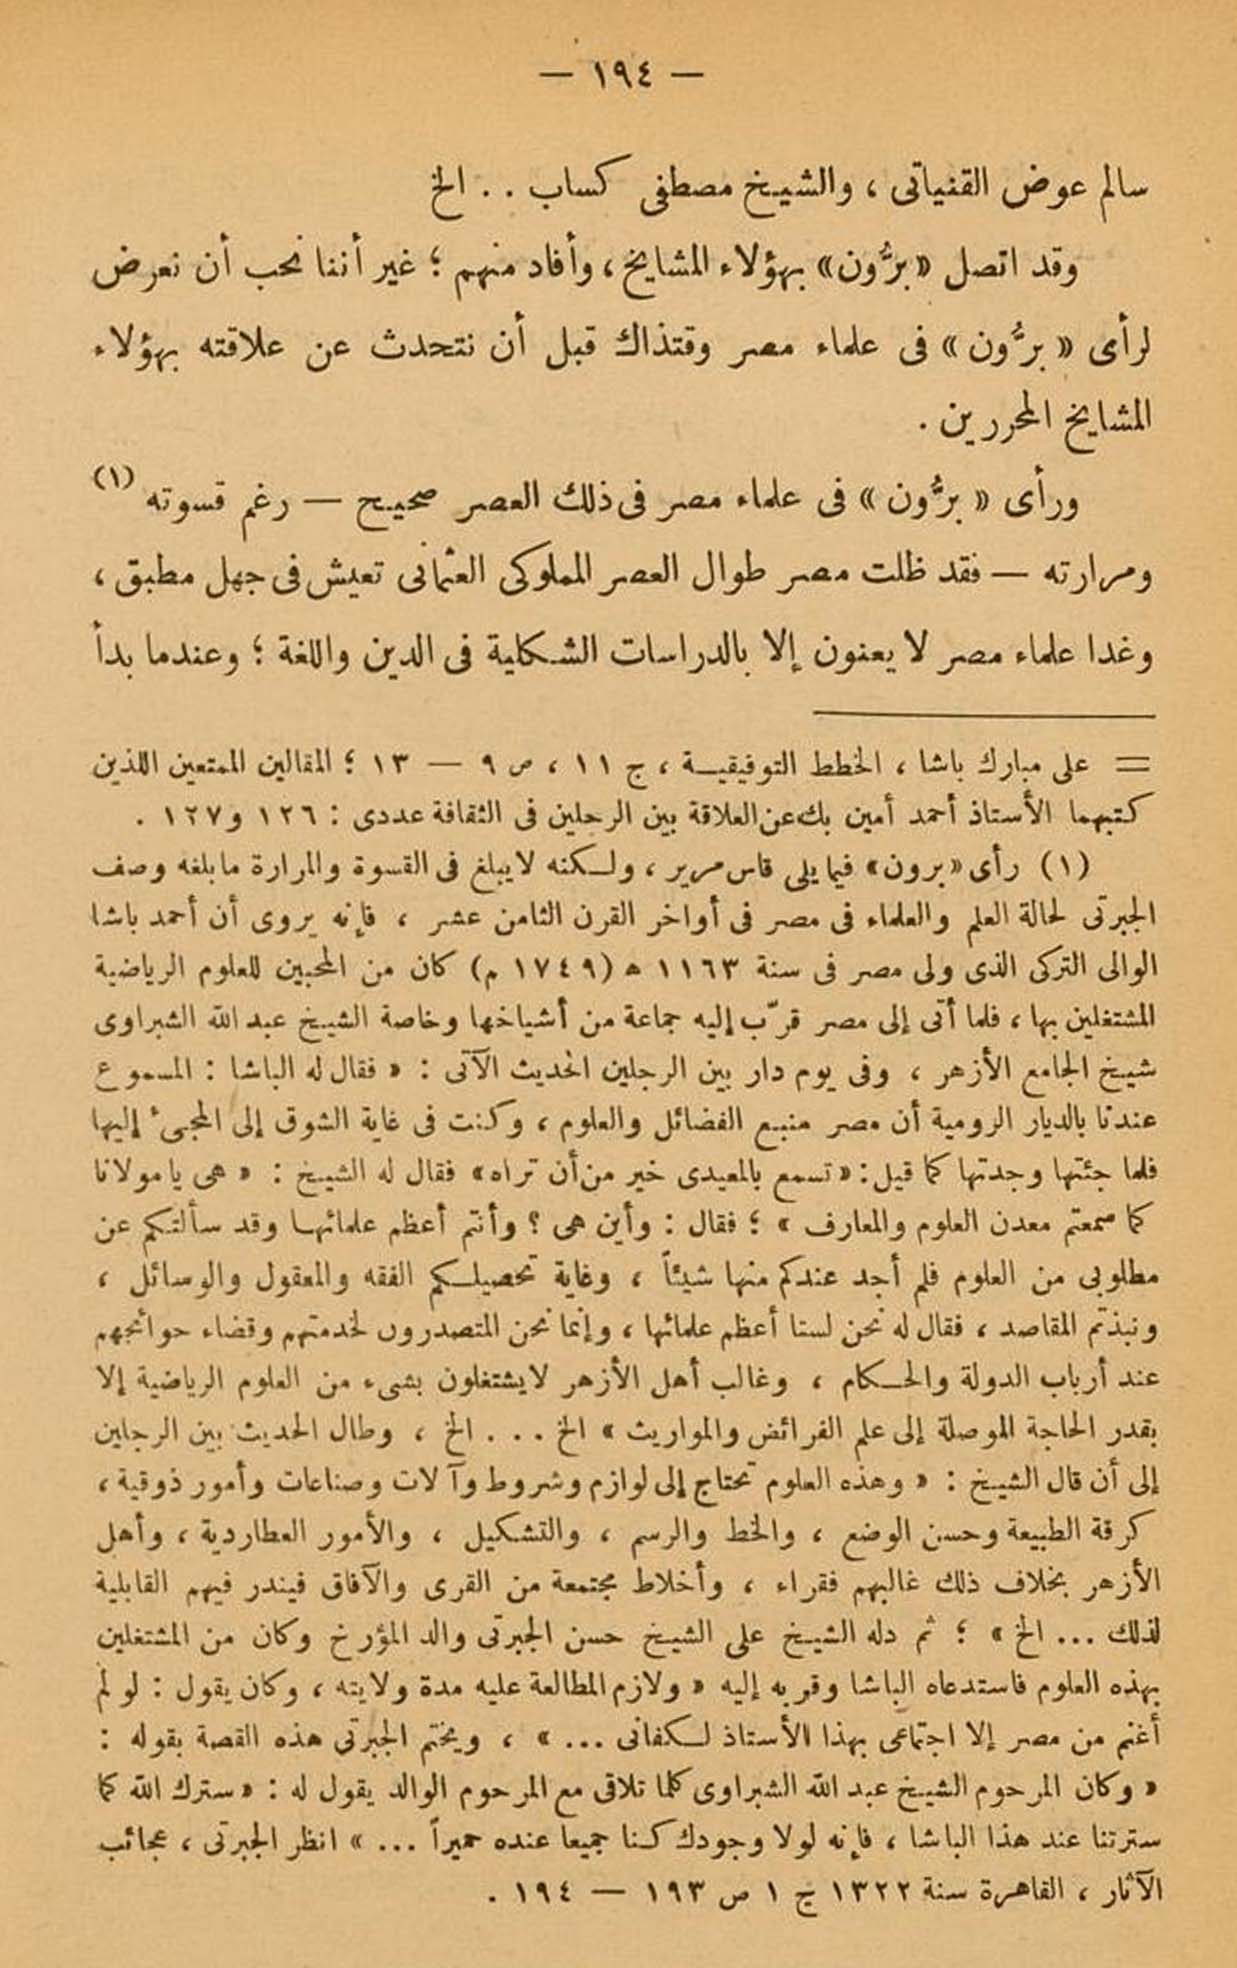 — ١٩٤ —
سالم عوض القنياتى ، والشيخ مصطفى كساب . . الخ
وقد اتصل « برُّون » بهؤلاء المشايخ ، وأفاد منهم ؛ غير أننا نحب أن نعرض
لرأى « برُّون » فى علماء مصر وقتذاك قبل أن نتحدث عن علاقته بهؤلاء
المشايخ المحررين .
ورأى « برُّون » فى علماء مصر فى ذلك العصر صحيح — رغم قسوته (١)
ومرارته — فقد ظلت مصر طوال العصر المملوكى العثمانى تعيش فى جهل مطبق ،
وغدا علماء مصر لا يعنون إلا بالدراسات الشكلية فى الدين واللغة ؛ وعندما بدأ
= على مبارك باشا ، الخطط التوفيقية ، ج ١١ ، ص ٩ — ١٣ ؛ المقالين الممتعين اللذين
كتبهما الأستاذ أحمد أمين بك عن العلاقة بين الرجلين فى الثقافة عددى : ١٢٦ و ١٢٧ .
(١) رأى « برون » فيما يلى قاس مرير ، ولكنه لا يبلغ فى القسوة والمرارة ما بلغه وصف
الجبرتى لحالة العلم والعلماء فى مصر فى أواخر القرن الثامن عشر ، فإنه يروى أن أحمد باشا
الوالى التركى الذى ولى مصر فى سنة ١١٦٣ ه (١٧٤٩ م) كان من المحبين للعلوم الرياضية
المشتغلين بها ، فلما أتى إلى مصر قرّب إليه جماعة من أشياخها وخاصة الشيخ عبد الله الشبراوى
شيخ الجامع الأزهر ، وفى يوم دار بين الرجلين الحديث الآتى : « فقال له الباشا : المسموع
عندنا بالديار الرومية أن مصر منبع الفضائل والعلوم ، وكنت فى غاية الشوق إلى المجىء إليها
فلما جئتها وجدتها كما قيل : « تسمع بالمعيدى خير من أن تراه » فقال له الشيخ : « هى يا مولانا
كما سمعتم معدن العلوم والمعارف » ؛ فقال : وأين هى ؟ وأنتم أعظم علمائها وقد سألتكم عن
مطلوبى من العلوم فلم أجد عندكم منها شيئاً ، وغاية تحصيلكم الفقه والمعقول والوسائل ،
ونبذتم المقاصد ، فقال له نحن لسنا أعظم علمائها ، وإنما نحن المتصدرون لخدمتهم وقضاء حوائجهم
عند أرباب الدولة والحكام ، وغالب أهل الأزهر لا يشتغلون بشىء من العلوم الرياضية إلا
بقدر الحاجة الموصلة إلى علم الفرائض والمواريث » الخ . . . الخ ، وطال الحديث بين الرجلين
إلى أن قال الشيخ : « وهذه العلوم تحتاج إلى لوازم وشروط وآلات وصناعات وأمور ذوقية ،
كرقة الطبيعة وحسن الوضع ، والخط والرسم ، والتشكيل ، والأمور العطاردية ، وأهل
الأزهر بخلاف ذلك غالبهم فقراء ، وأخلاط مجتمعة من القرى والآفاق فيندر فيهم القابلية
لذلك ... الخ » ؛ ثم دله الشيخ على الشيخ حسن الجبرتى والد المؤرخ وكان من المشتغلين
بهذه العلوم فاستدعاه الباشا وقربه إليه « ولازم المطالعة عليه مدة ولايته ، وكان يقول : لو لم
أغنم من مصر إلا اجتماعى بهذا الأستاذ لكفانى ... » ، ويختم الجبرتى هذه القصة بقوله :
« وكان المرحوم الشيخ عبد الله الشبراوى كلما تلاقى مع المرحوم الوالد يقول له : « سترك الله كما
سترتنا عند هذا الباشا ، فإنه لولا وجودك كنا جميعا عنده حميراً ... » انظر الجبرتى ، عجائب
الآثار ، القاهرة سنة ١٣٢٢ ج ١ ص ١٩٣ — ١٩٤ .